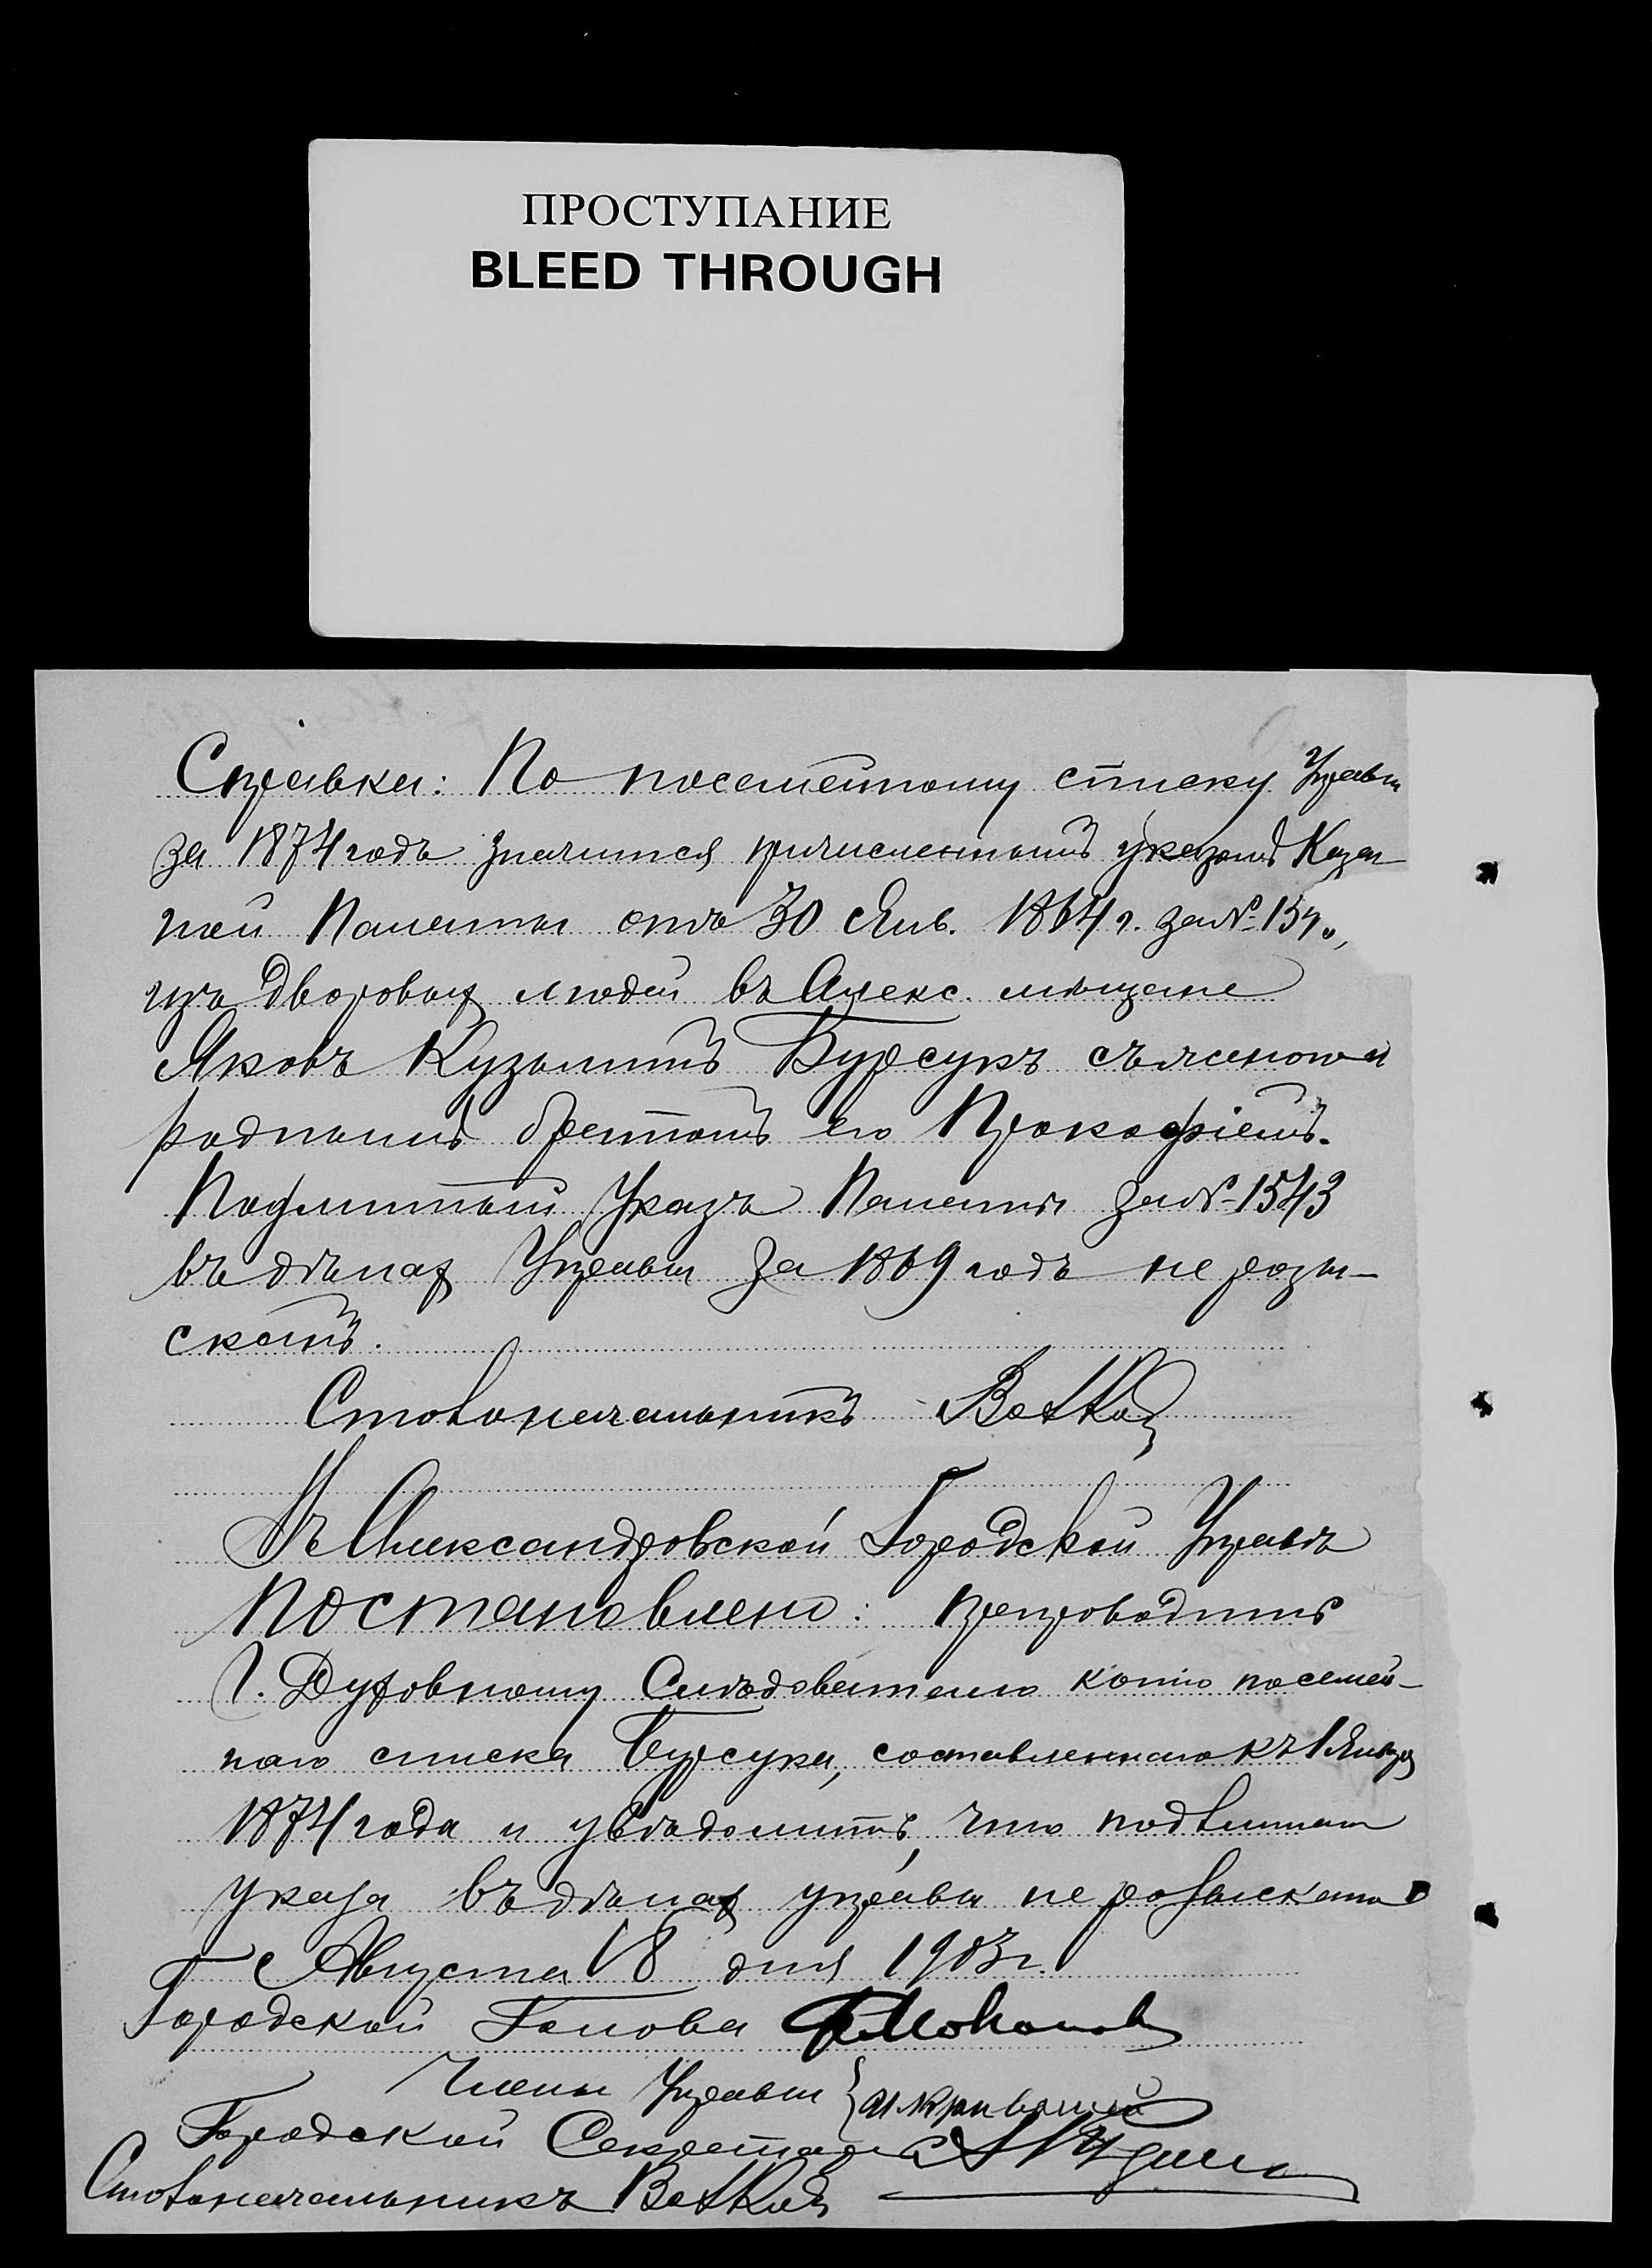 ПРОСТУПАНИЕ
BLEED THROUGH
Справка: По посемейному списку Управы
за 1874 годъ значится причисленнымъ указомъ Казен-
ной Палаты отъ 30 Янв. 1864 г. за №
изъ дворовыхъ людей въ Алекс. мѣщане
Яковъ Кузьминъ Бурсукъ съ женою и
роднымъ братомъ его Прокофіемъ.
Подлинный Указъ Палаты за № 1543
въ дѣлахъ Управы за 1869 годъ не розы-
сканъ.
Столоначальникъ
Въ Александровской Городской Управѣ
Постановлено: препроводить
Г. Духовному Слѣдователю копію посемей-
наго списка Бурсука, составленнаго къ 1 Января
1874 года и увѣдомить, что подлиннаго
указа въ дѣлахъ управы не розыскано
Августа 18 дня 1903 г.
Городской Голова
Члены Управы
Городской Секретарь
Столоначальникъ